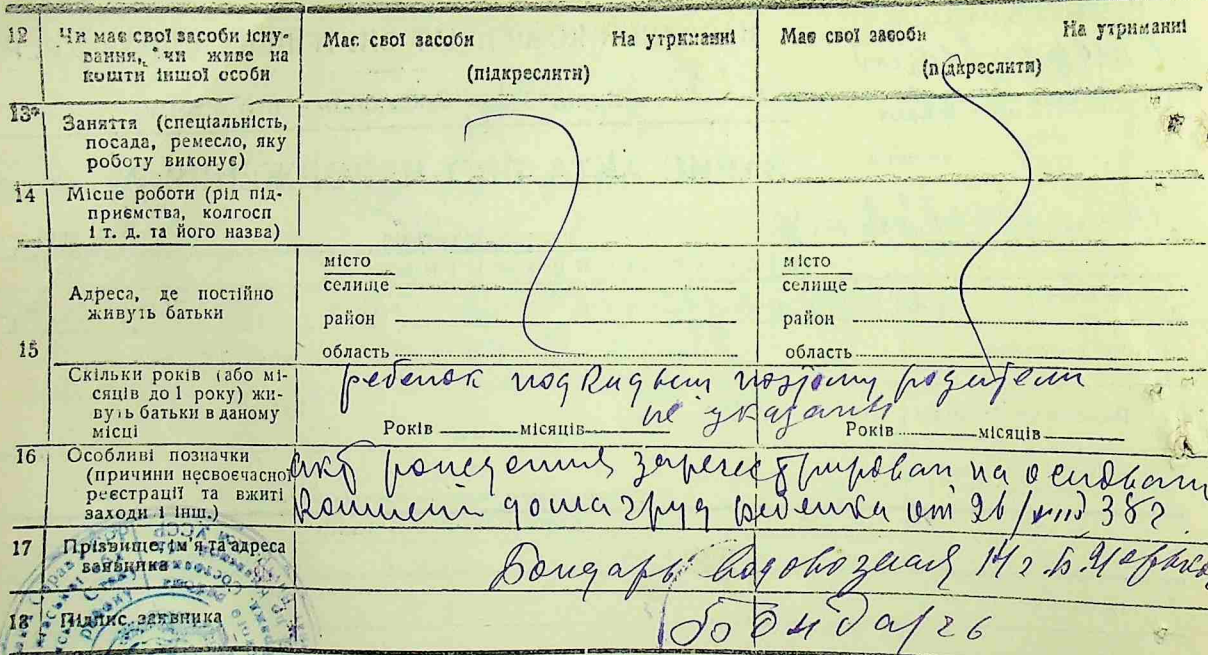 12 Чи має свої засоби існу-
вання, чи живе на
кошти іншої особи
Має свої засоби На утриманні
(підкреслити)
Має свої засоби На утриманні
(підкреслити)
13* Заняття (спеціальність,
посада, ремесло, яку
роботу виконує)
14 Місце роботи (рід під-
приємства, колгосп
і т. д. та його назва)
15 Адреса, де постійно
живуть батьки
місто
селище
район
область
місто
селище
район
область
Скільки років (або мі-
сяців до 1 року) жи-
вуть батьки в даному
місці
ребенок подкидыш поэтому родители
не указаны
Років місяців
Років місяців
16 Особливі позначки
(причини несвоєчасної
реєстрації та вжиті
заходи і інш.)
акт рождения зарегестрирован на основании
дома груд ребенка от 26/VIII 38г
17 Прізвище, ім'я та адреса
заявника
Бондарь
18 Підпис заявника
Бондарь